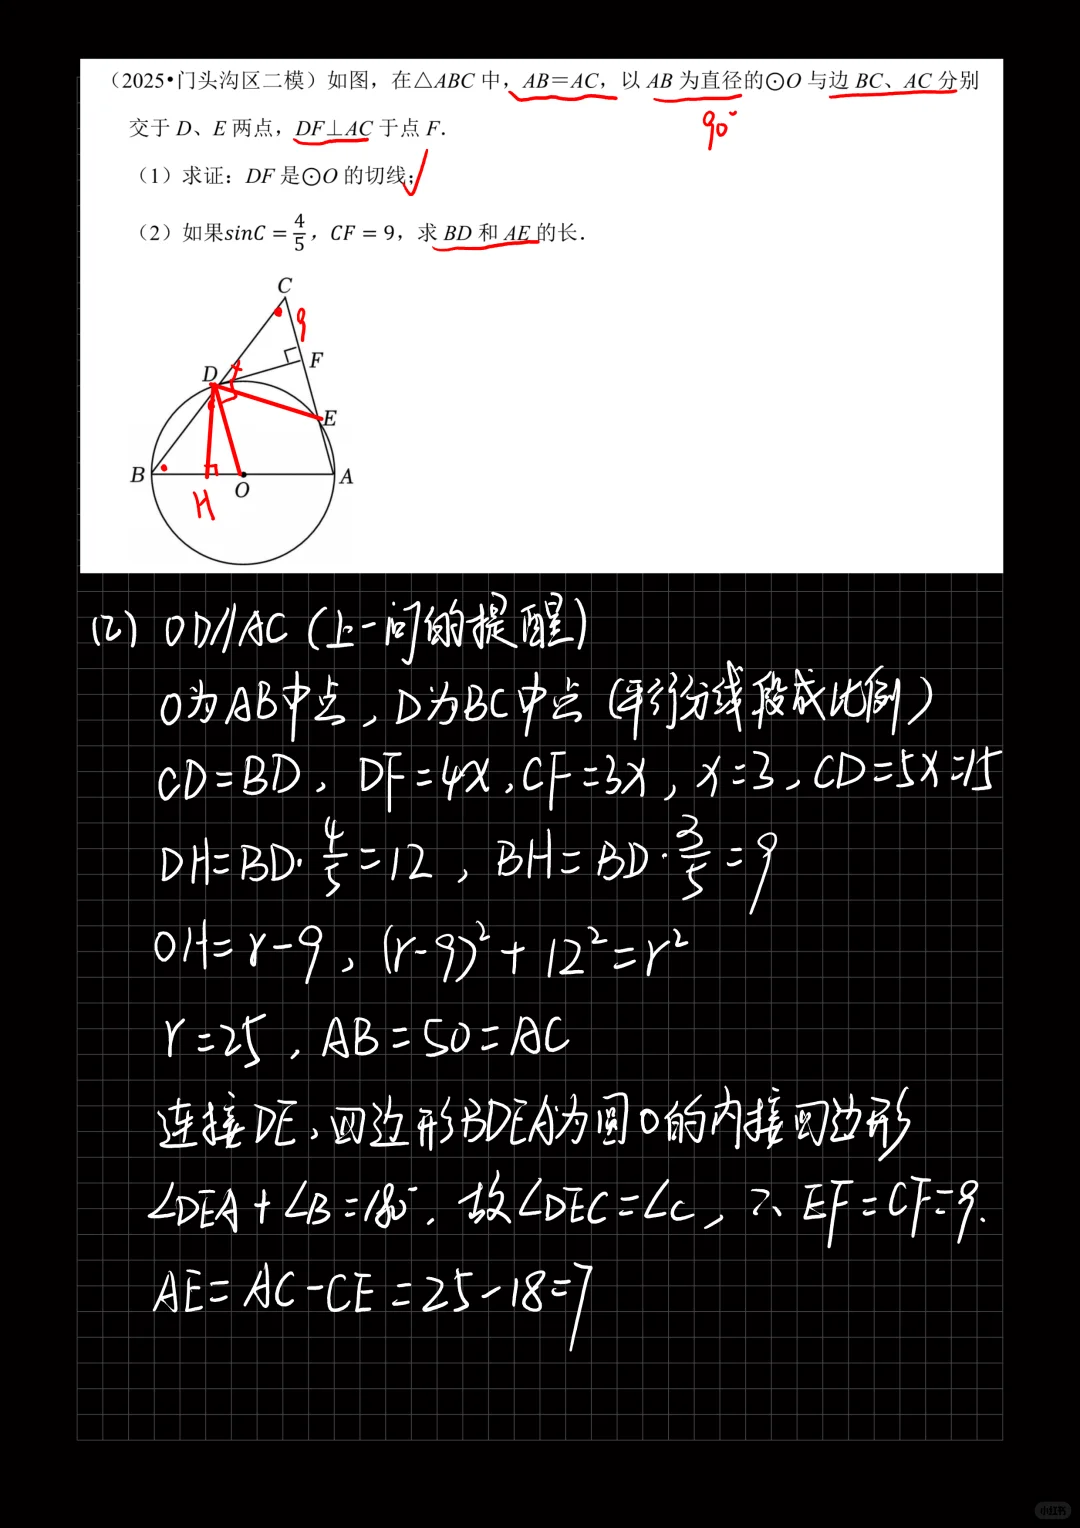 （2025•门头沟区二模）如图，在△ABC 中，AB＝AC，以 AB 为直径的⊙O 与边 BC、AC 分别
交于 D、E 两点，DF⊥AC 于点 F．
90°
（1）求证：DF 是⊙O 的切线；
（2）如果sinC = 4/5，CF = 9，求 BD 和 AE 的长．
C
9
F
D
E
B
O
A
H
(2) OD∥AC (上一问的提醒)
O为AB中点，D为BC中点 (平行分线段成比例)
CD=BD，DF=4x，CF=3x，x=3，CD=5x=15
DH=BD·4/5=12，BH=BD·3/5=9
OH=r-9，(r-9)²+12²=r²
r=25，AB=50=AC
连接DE，四边形BDEA为圆O的内接四边形
∠DEA+∠B=180°．故∠DEC=∠C，∴ EF=CF=9．
AE=AC-CE=25-18=7